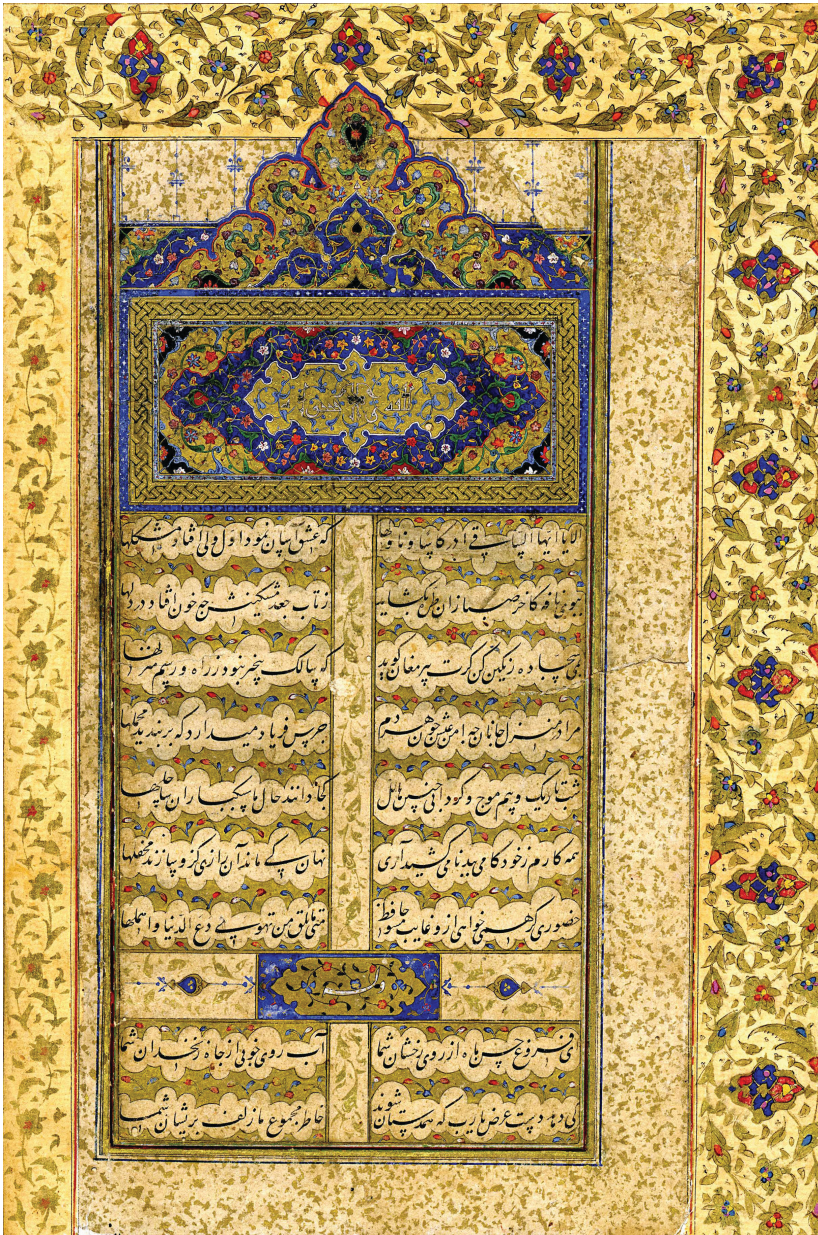 الا یا ایها الساقی ادر کاسا و ناولها که عشق آسان نمود اول ولی افتاد مشکلها
ببوی نافه کاخر صبا زان طره بگشاید ز تاب جعد مشکینش چه خون افتاد در دلها
بمی سجاده رنگین کن گرت پیر مغان گوید که سالک بیخبر نبود ز راه و رسم منزلها
مرا در منزل جانان چه امن عیش چون هر دم جرس فریاد میدارد که بربندید محملها
شب تاریک و بیم موج و گردابی چنین هایل کجا دانند حال ما سبکباران ساحلها
همه کارم ز خود کامی ببدنامی کشید آری نهان کی ماند آن رازی کزو سازند محفلها
حضوری گر همی خواهی ازو غایب مشو حافظ متی ما تلق من تهوی دع الدنیا و اهملها
وله
ای فروغ حسن ماه از روی رخشان شما آب روی خوبی از چاه زنخدان شما
کی دهد دست غرض یارب که همدستان شوند خاطر مجموع ما زلف پریشان شما